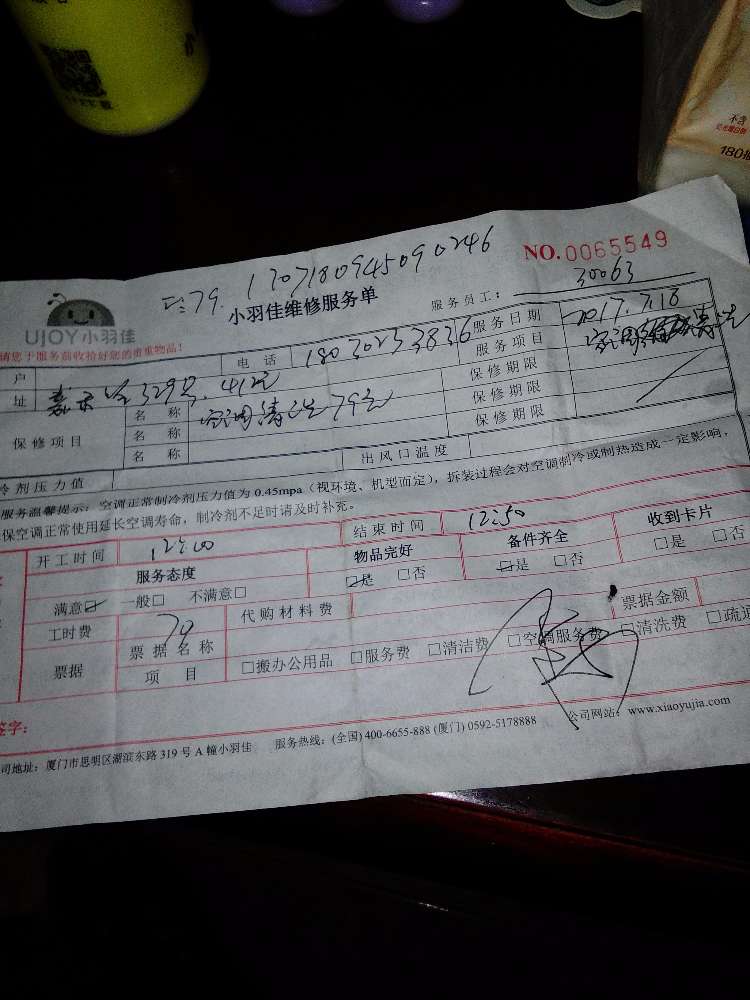 不含
180抽
1707180945090246
NO.0065549
小羽佳维修服务单
服务员工：30063
UJOY小羽佳
请您于服务前收拾好您的贵重物品！
户 电话 18030233836 服务日期 2017.7.18
址 329号 服务项目
保修项目 名称 空调清洗79元 保修期限
名称 保修期限
名称 保修期限
冷剂压力值 出风口温度
服务温馨提示：空调正常制冷剂压力值为 0.45mpa（视环境、机型而定），拆装过程会对空调制冷或制热造成一定影响，
保空调正常使用延长空调寿命，制冷剂不足时请及时补充。
开工时间 12:00 结束时间 12:50
服务态度 物品完好 备件齐全 收到卡片
满意☑ 一般□ 不满意□ ☑是 □否 ☑是 □否 □是 □否
工时费 79 代购材料费
票据 票据名称 票据金额
项目 □搬办公用品 □服务费 □清洁费 □空调服务费 □清洗费 □疏通
签字：
司地址：厦门市思明区湖滨东路 319 号 A 幢小羽佳 服务热线：(全国) 400-6655-888 (厦门) 0592-5178888 公司网站：www.xiaoyujia.com